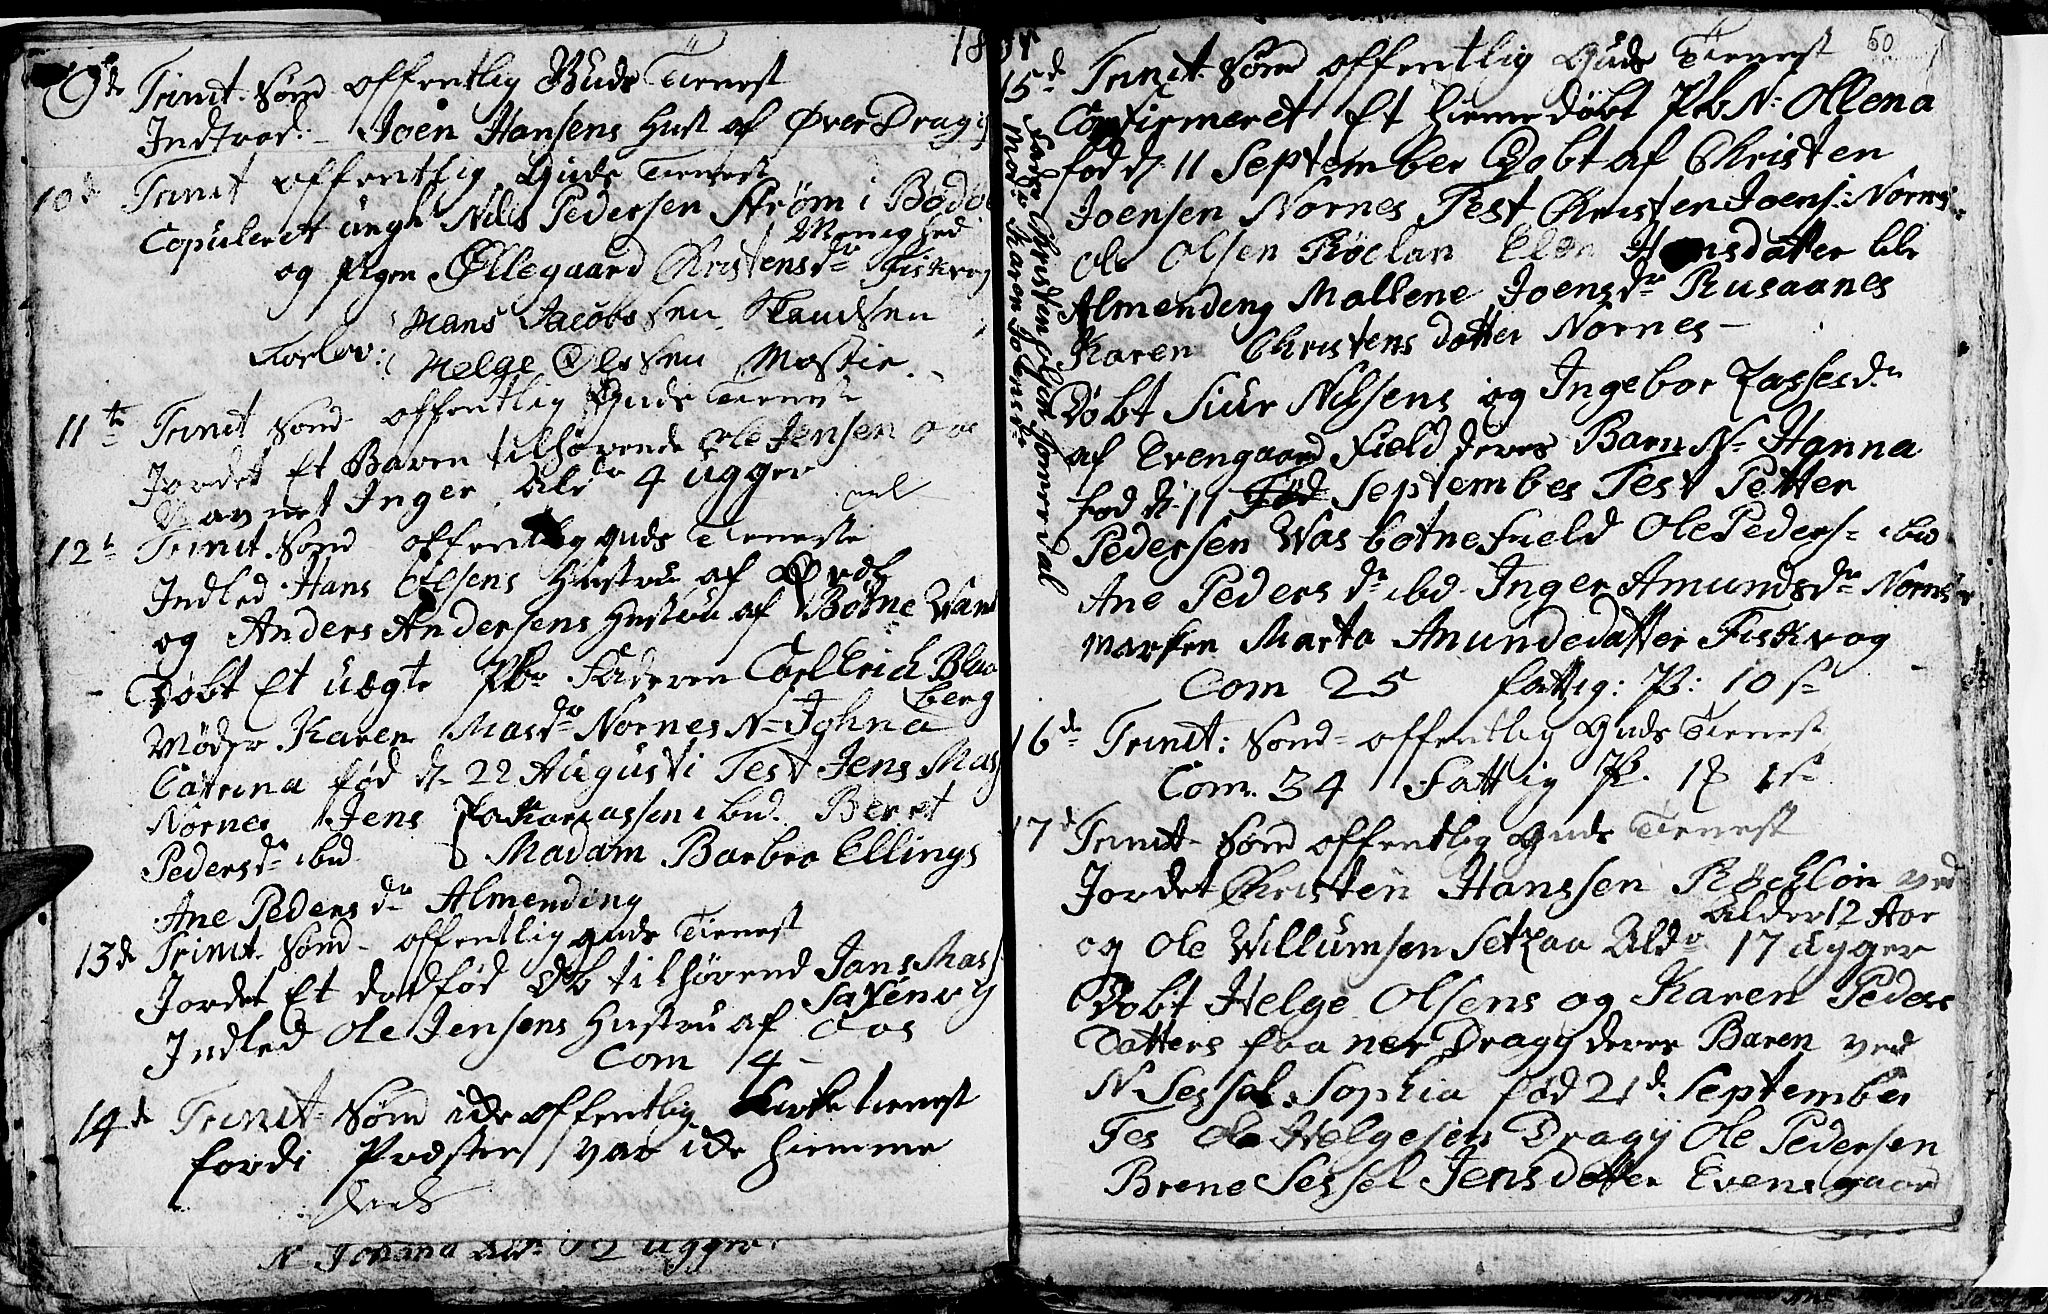 18
9de Trinit. Sønd offentlig Guds Tienest
Indtrod: Joen Hansens Hust af ØverDragg
10de Trinit offentlig Guds Tienest
Copuleret ungk Nils Pedersen Strøm i Bodøe
Menighed
og Pigen Øllegaard Christensdr Fiskvog
Hans Jacobssen Skaudsen
Forlov:
Helge Olssen Mostie
11te Trinit Sønd offentlig Guds Tienest
Jordet Et Baren tilhørende Ole Jensen Oos
Navnet Inger Aldr 4 ugger
12t Trinit. Sønd offentlig guds Tieneste
Indled Hans Olsens Hustrue af
og Anders Andersens Hustru af Botne Wand
Døbt Et uægte Pb Faderen Carl Erich Blom
berg
Møder Karen Masdr Nornes N Johna
Catrina fød d 22 Augusti Test Jens Mass
Nornes Jens Zakariassen ibid. Beret
Pedersdr ibid Madam Barbro Ellings
Ane Pedersdr Almending
13de Trinit. Sønd offentlig guds Tienest
Jordet Et dødfød Db tilhørend Jans Mass
Saxenvig
Indled Ole Jensens Hustru af Oos
Com 4
14de Trinit Sønd ide offentlig Kirketienest
fordi Præsten var ide hiemme
N Johanna Aldr 2 ugger
50
15de Trinit. Sønd offentlig Guds Tienest
Confirmeret Et hiemedøbt Pb N. Ollena
fød d. 11 September Døbt af Christen
Joensen Nornes Test Christen Joens: Nornes
Ole Olsen Røclan Elen Hansdatter lille
Almending Mallene Joensdr Rusaanes
Karen Christens datter Nornes
Fader Christen Junkerdal
Moder Karen Johnsdr
Døbt Siur Nilsens og Ingebor Zassesdr
af Evengaard Field deres Barn N. Hanna
fød d. 11 September Test Petter
Pedersen Wasbotnefield Ole Peders ibid
Ane Pedersdr ibd Inger Amundsdr Nornes
marken Marta Amundsdatter Fiskvog
Com 25 fattig: P: 10 s
16de Trinit: Sønd offentlig Guds Tienest
Com. 34 Fattig P. 1 s
17de Trinit Sønd offentlig Guds Tienest
Jordet Christen Hanssen Røchlon
Alder 12 Aar
og Ole Willumsen Setzaa Aldr 17 ugger
Døbt Helge Olsens og Karen Peders
Datters fra nerDragg deres Baren
N Sessel Sophia fød 21de September
Tes Ole Helgesen Dragg Ole Pedersen
Brene Sessel Jensdatter Evensgaard